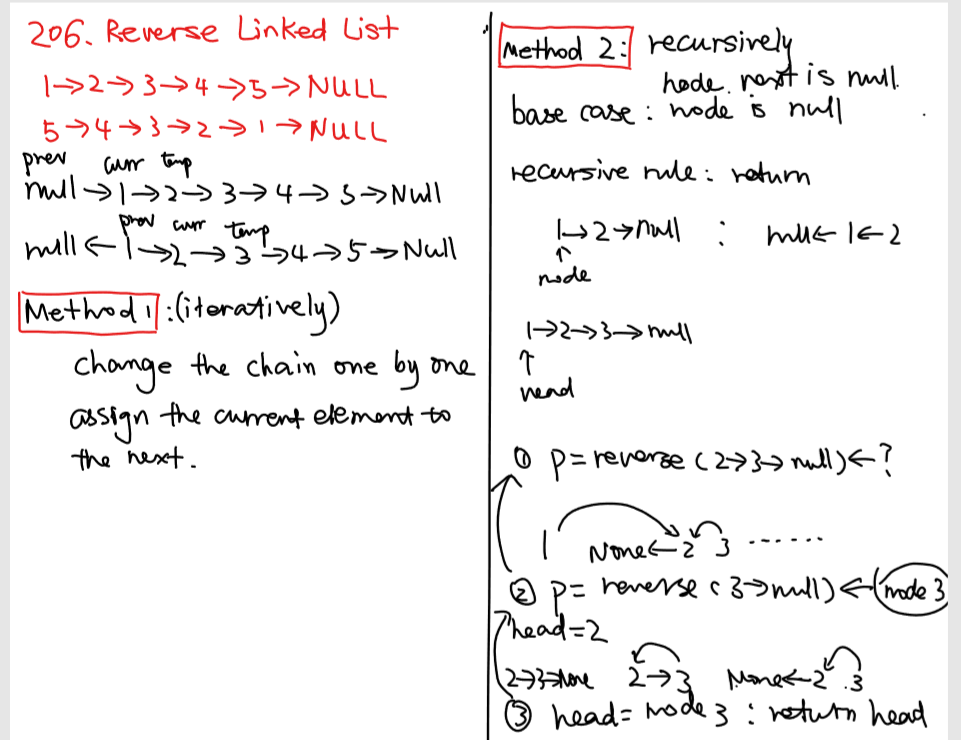 206. Reverse Linked List
1→2→3→4→5→NULL
5→4→3→2→1→NULL
prev curr temp
null→1→2→3→4→5→Null
prev curr temp
null←1→2→3→4→5→Null
Method 1:(iteratively)
change the chain one by one
assign the current element to
the next.
Method 2: recursively
node.next is null.
base case: node is null
recursive rule: return
1→2→null : null←1←2
↑
node
1→2→3→null
↑
head
① p=reverse(2→3→null)←?
1 None←2 3 ......
② p= reverse(3→null)←(node 3
head=2
2→3→None 2→3 None←2 3
③ head= node 3 : return head